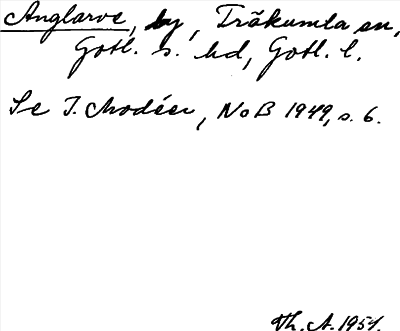 Anglarve, by, Träkumla sn,
Gotl. s. hd, Gotl. l.
Se I. Modéer, NoB 1949, s. 6.
Th. A. 1954.